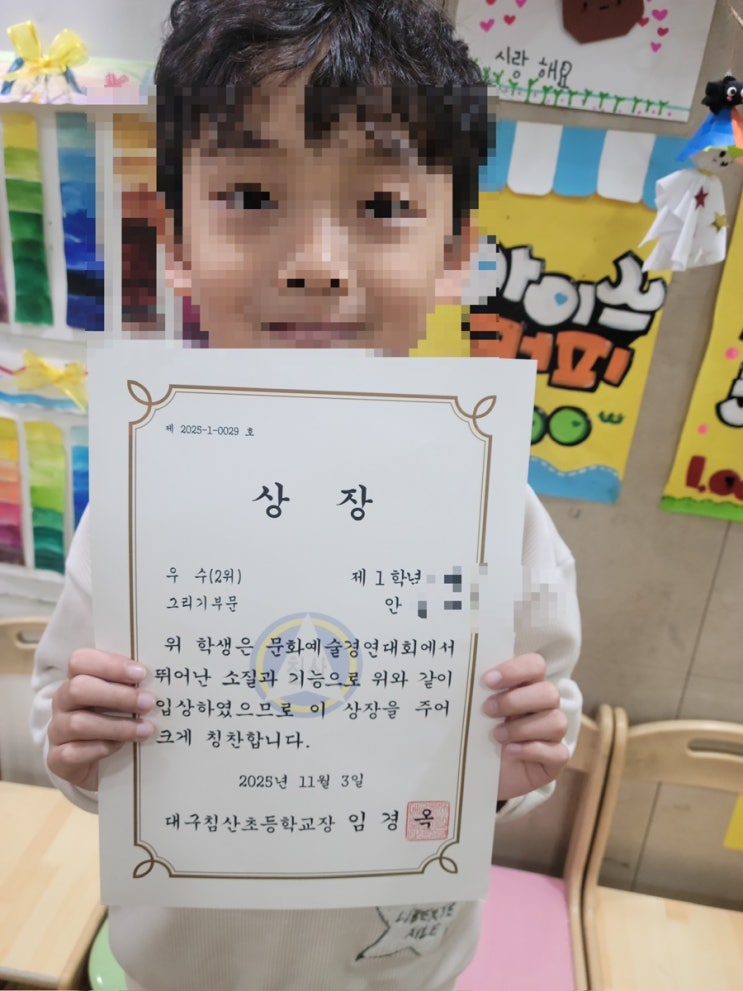 사랑 해요
아이스
커피
제 2025-1-0029 호
상 장
우 수(2위)
제 1 학년
그리기부문
안
위 학생은 문화예술경연대회에서
뛰어난 소질과 기능으로 위와 같이
입상하였으므로 이 상장을 주어
크게 칭찬합니다.
2025년 11월 3일
대구침산초등학교장 임 경 옥
침산